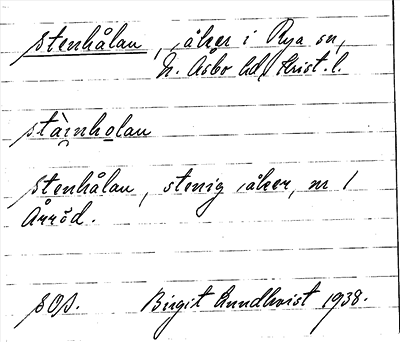 Stenhålan, åker i Rya sn,
N. Åsbo hd, Krist. l.
stàinholau
Stenhålan, stenig åker, nr 1
Årröd.
SOA. Birgit Lundkvist 1938.